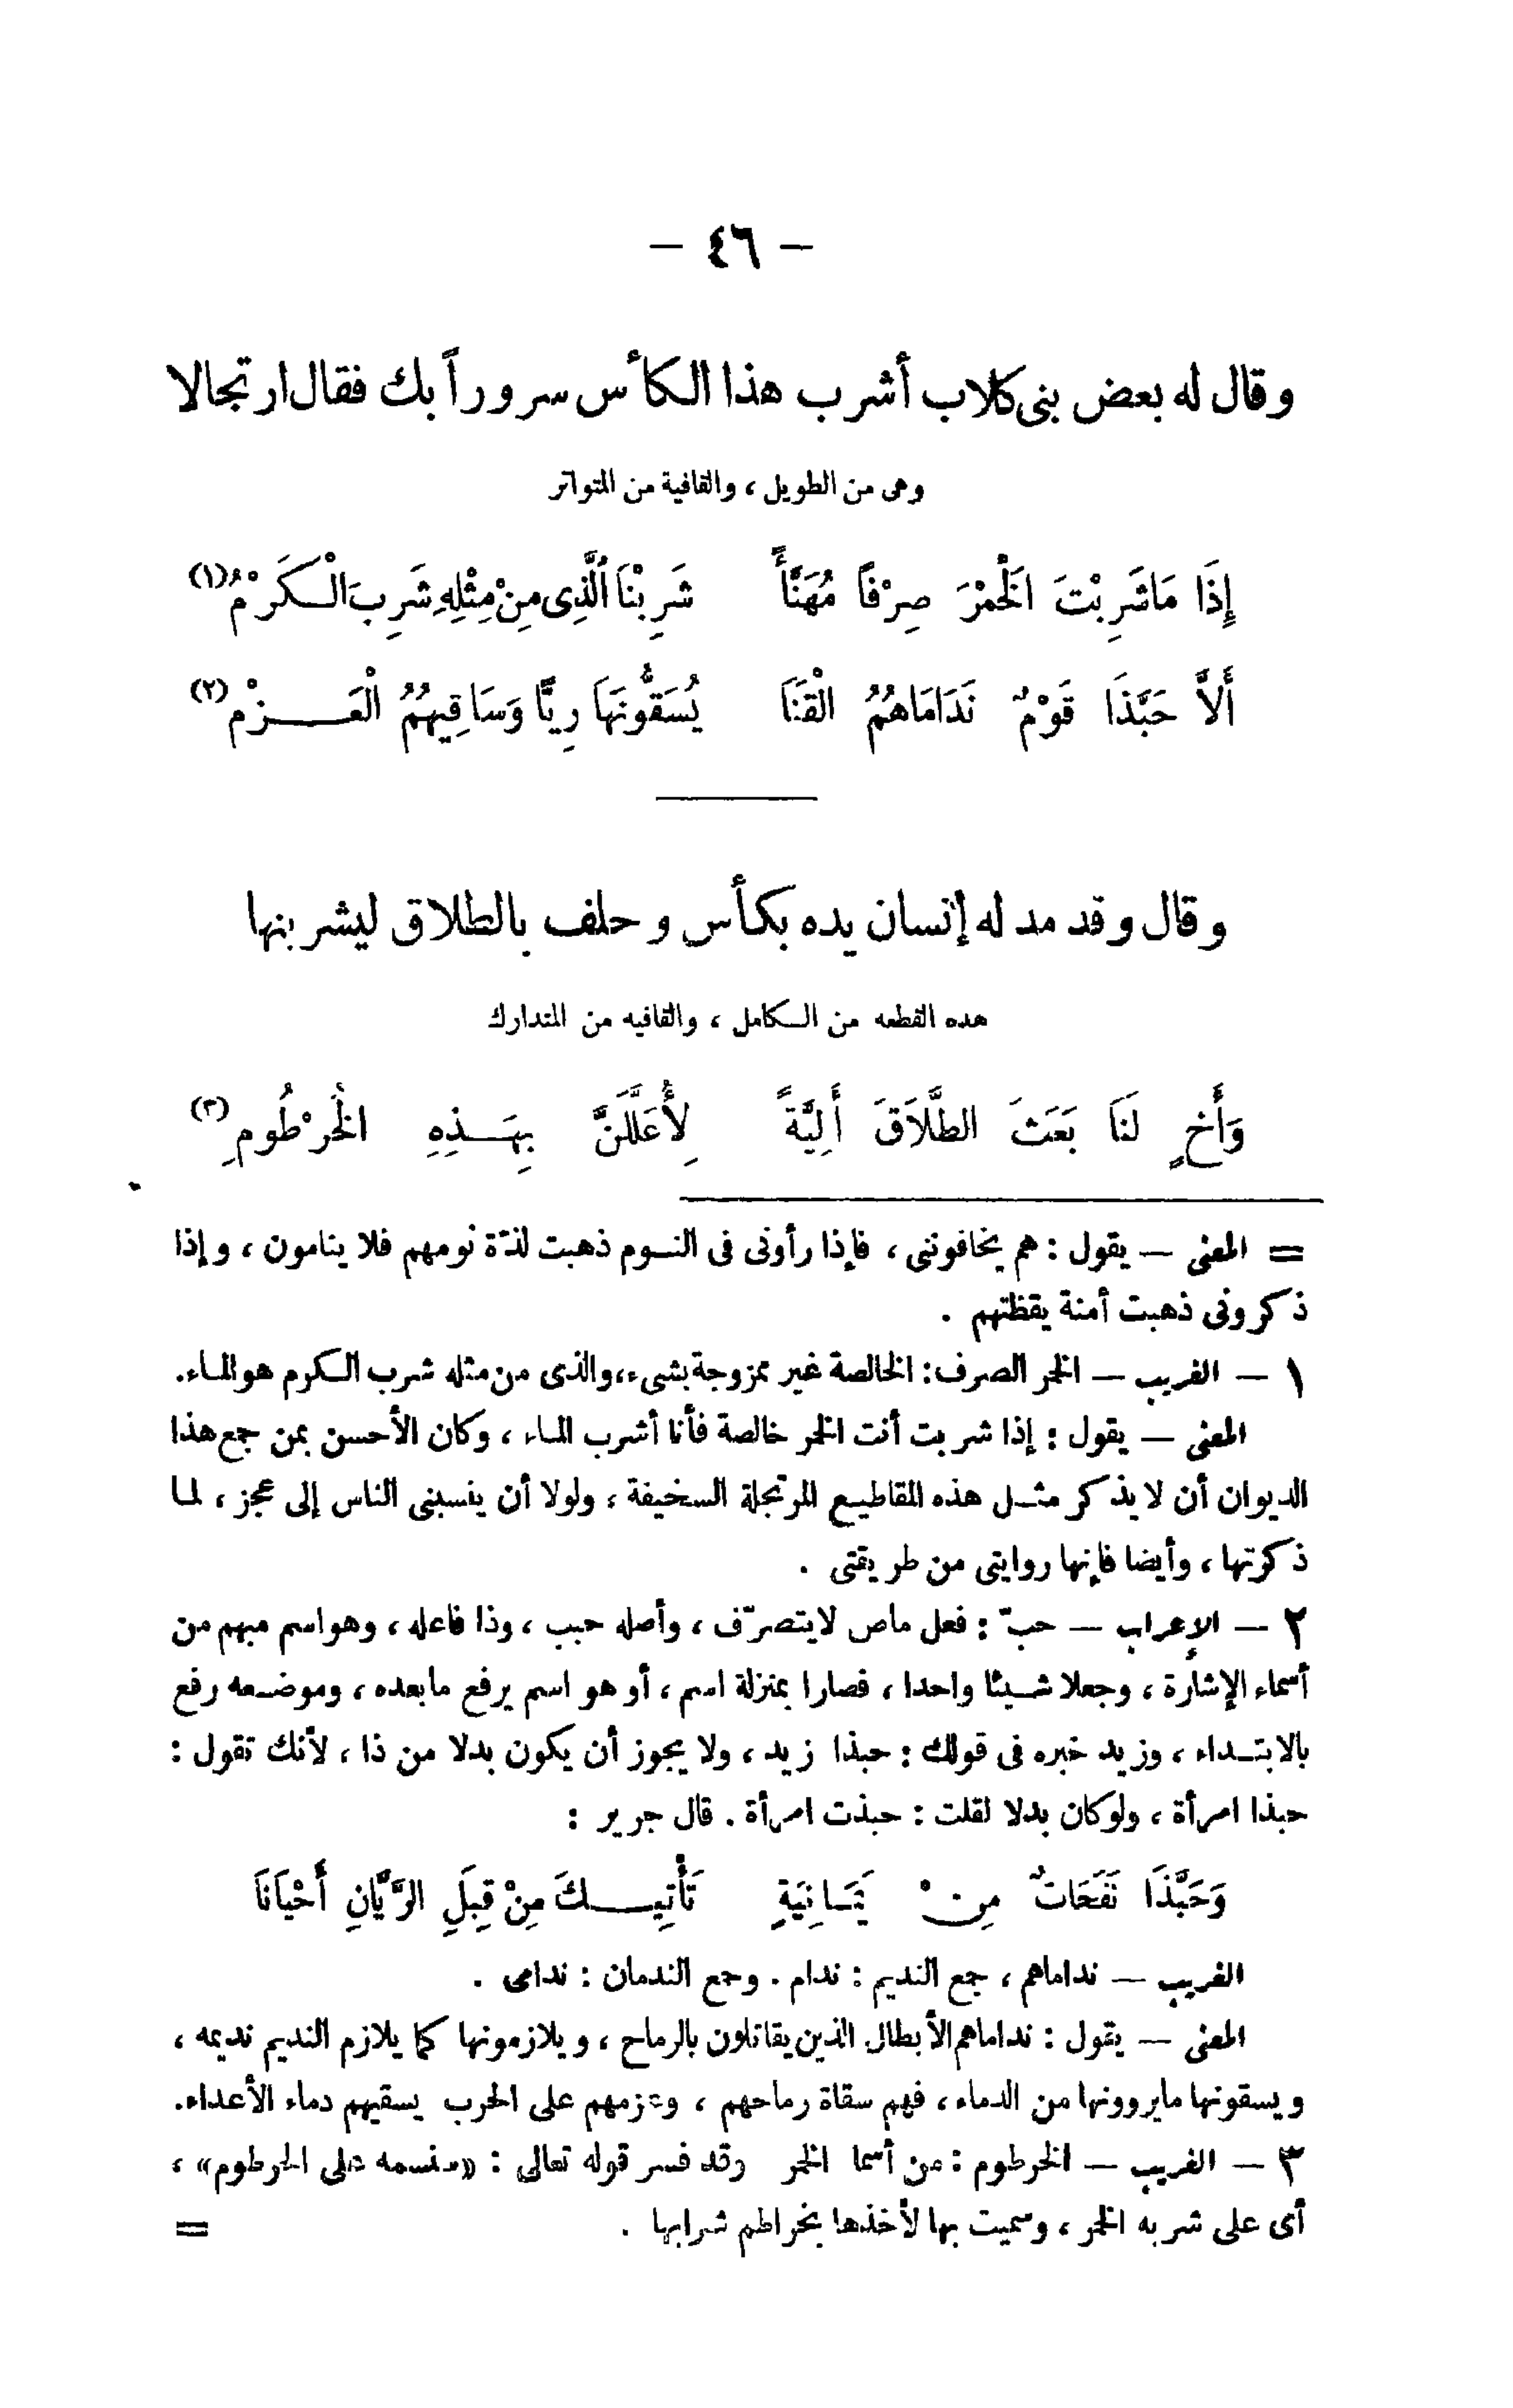 — ٤٦ —
وقال له بعض بنى كلاب أشرب هذا الكأس سروراً بك فقال ارتجالا
وهى من الطويل ، والقافية من المتواتر
إِذَا مَاشَرِبْتَ الْخَمْرَ صِرْفًا مُهَنَّأً شَرِبْنَا الَّذِى مِنْ مِثْلِهِ شَرِبَ الْكَرْمُ (١)
أَلاَ حَبَّذَا قَوْمٌ نَدَامَاهُمُ الْقَنَا يُسَقُّونَهَا رِيًّا وَسَاقِيهِمُ الْعَزْمُ (٢)
وقال وقد مد له إنسان يده بكأس وحلف بالطلاق ليشربنها
هده القطعه من الكامل ، والقافيه من المتدارك
وَأَخٍ لَنَا بَعَثَ الطَّلاَقَ أَلِيَّةً لِأُعَلَّلَنَّ بِهَذِهِ الْخُرْطُومِ (٣)
= المعنى — يقول : هم يخافوننى ، فإذا رأونى فى النوم ذهبت لذّة نومهم فلا ينامون ، وإذا
ذكرونى ذهبت أمنة يقظتهم .
١ — الغريب — الخمر الصرف : الخالصة غير ممزوجة بشىء ، والذى من مثله شرب الكرم هو الماء .
المعنى — يقول : إذا شربت أنت الخمر خالصة فأنا أشرب الماء ، وكان الأحسن بمن جمع هذا
الديوان أن لا يذكر مثل هذه المقاطيع المرتجلة السخيفة ، ولولا أن ينسبنى الناس إلى عجز ، لما
ذكرتها ، وأيضا فإنها روايتى من طريقتى .
٢ — الإعراب — حبّ : فعل ماض لايتصرّف ، وأصله حبب ، وذا فاعله ، وهو اسم مبهم من
أسماء الإشارة ، وجعلا شيئا واحدا ، فصارا بمنزلة اسم ، أو هو اسم يرفع مابعده ، وموضعه رفع
بالابتداء ، وزيد خبره فى قولك : حبذا زيد ، ولا يجوز أن يكون بدلا من ذا ، لأنك تقول :
حبذا امرأة ، ولوكان بدلا لقلت : حبذت امرأة . قال جرير :
وَحَبَّذَا نَفَحَاتٌ مِنْ يَمَانِيَةٍ تَأْتِيكَ مِنْ قِبَلِ الرَّيَّانِ أَحْيَانَا
الغريب — نداماهم ، جمع النديم : ندام . وجمع الندمان : ندامى .
المعنى — يقول : نداماهم الأبطال الذين يقاتلون بالرماح ، ويلازمونها كما يلازم النديم نديمه ،
ويسقونها مايروونها من الدماء ، فهم سقاة رماحهم ، وعزمهم على الحرب يسقيهم دماء الأعداء .
٣ — الغريب — الخرطوم : من أسما الخمر وقد فسر قوله تعالى : «سنسمه على الخرطوم» ،
أى على شربه الخمر ، وسميت بها لأخذها بخراطم شرابها . =